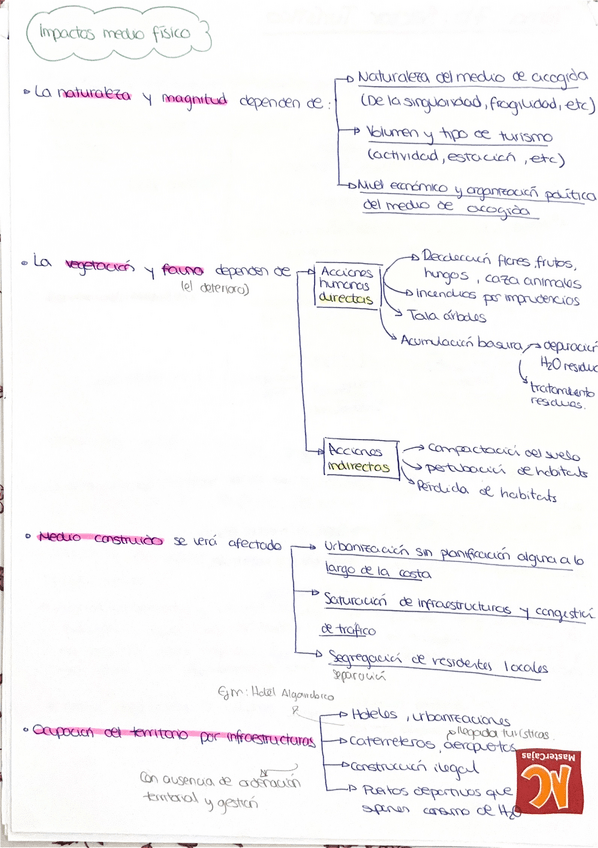 Impactos medio físico
• La naturaleza y magnitud dependen de:
Naturaleza del medio de acogida
(De la singularidad, fragilidad, etc)
Volumen y tipo de turismo
(actividad, estación, etc)
Nivel económico y organización política
del medio de acogida
• La vegetación y fauna dependen de
(el deterioro)
Acciones
humanas
directas
Recolección flores, frutos,
hongos, caza animales
Incendios por imprudencias
Tala árboles
Acumulación basura → depuración
H2O residuc
tratamiento
residuos.
Acciones
indirectas
compactación del suelo
pertubación de habitats
Pérdida de habitats
• Medio construido se verá afectado
Urbanización sin planificación alguna a lo
largo de la costa
Saturación de infraestructuras y congestión
de tráfico
Segregación de residentes locales
separación
Ejm: Hotel Algarrobico
• Ocupación del territorio por infraestructuras
Hoteles, urbanizaciones
llegada turísticas.
Carreteras, aeropuertos
Construcción ilegal
Puertos deportivos que
suponen consumo de H2O
Con ausencia de ordenación
territorial y gestión
MasterCajas